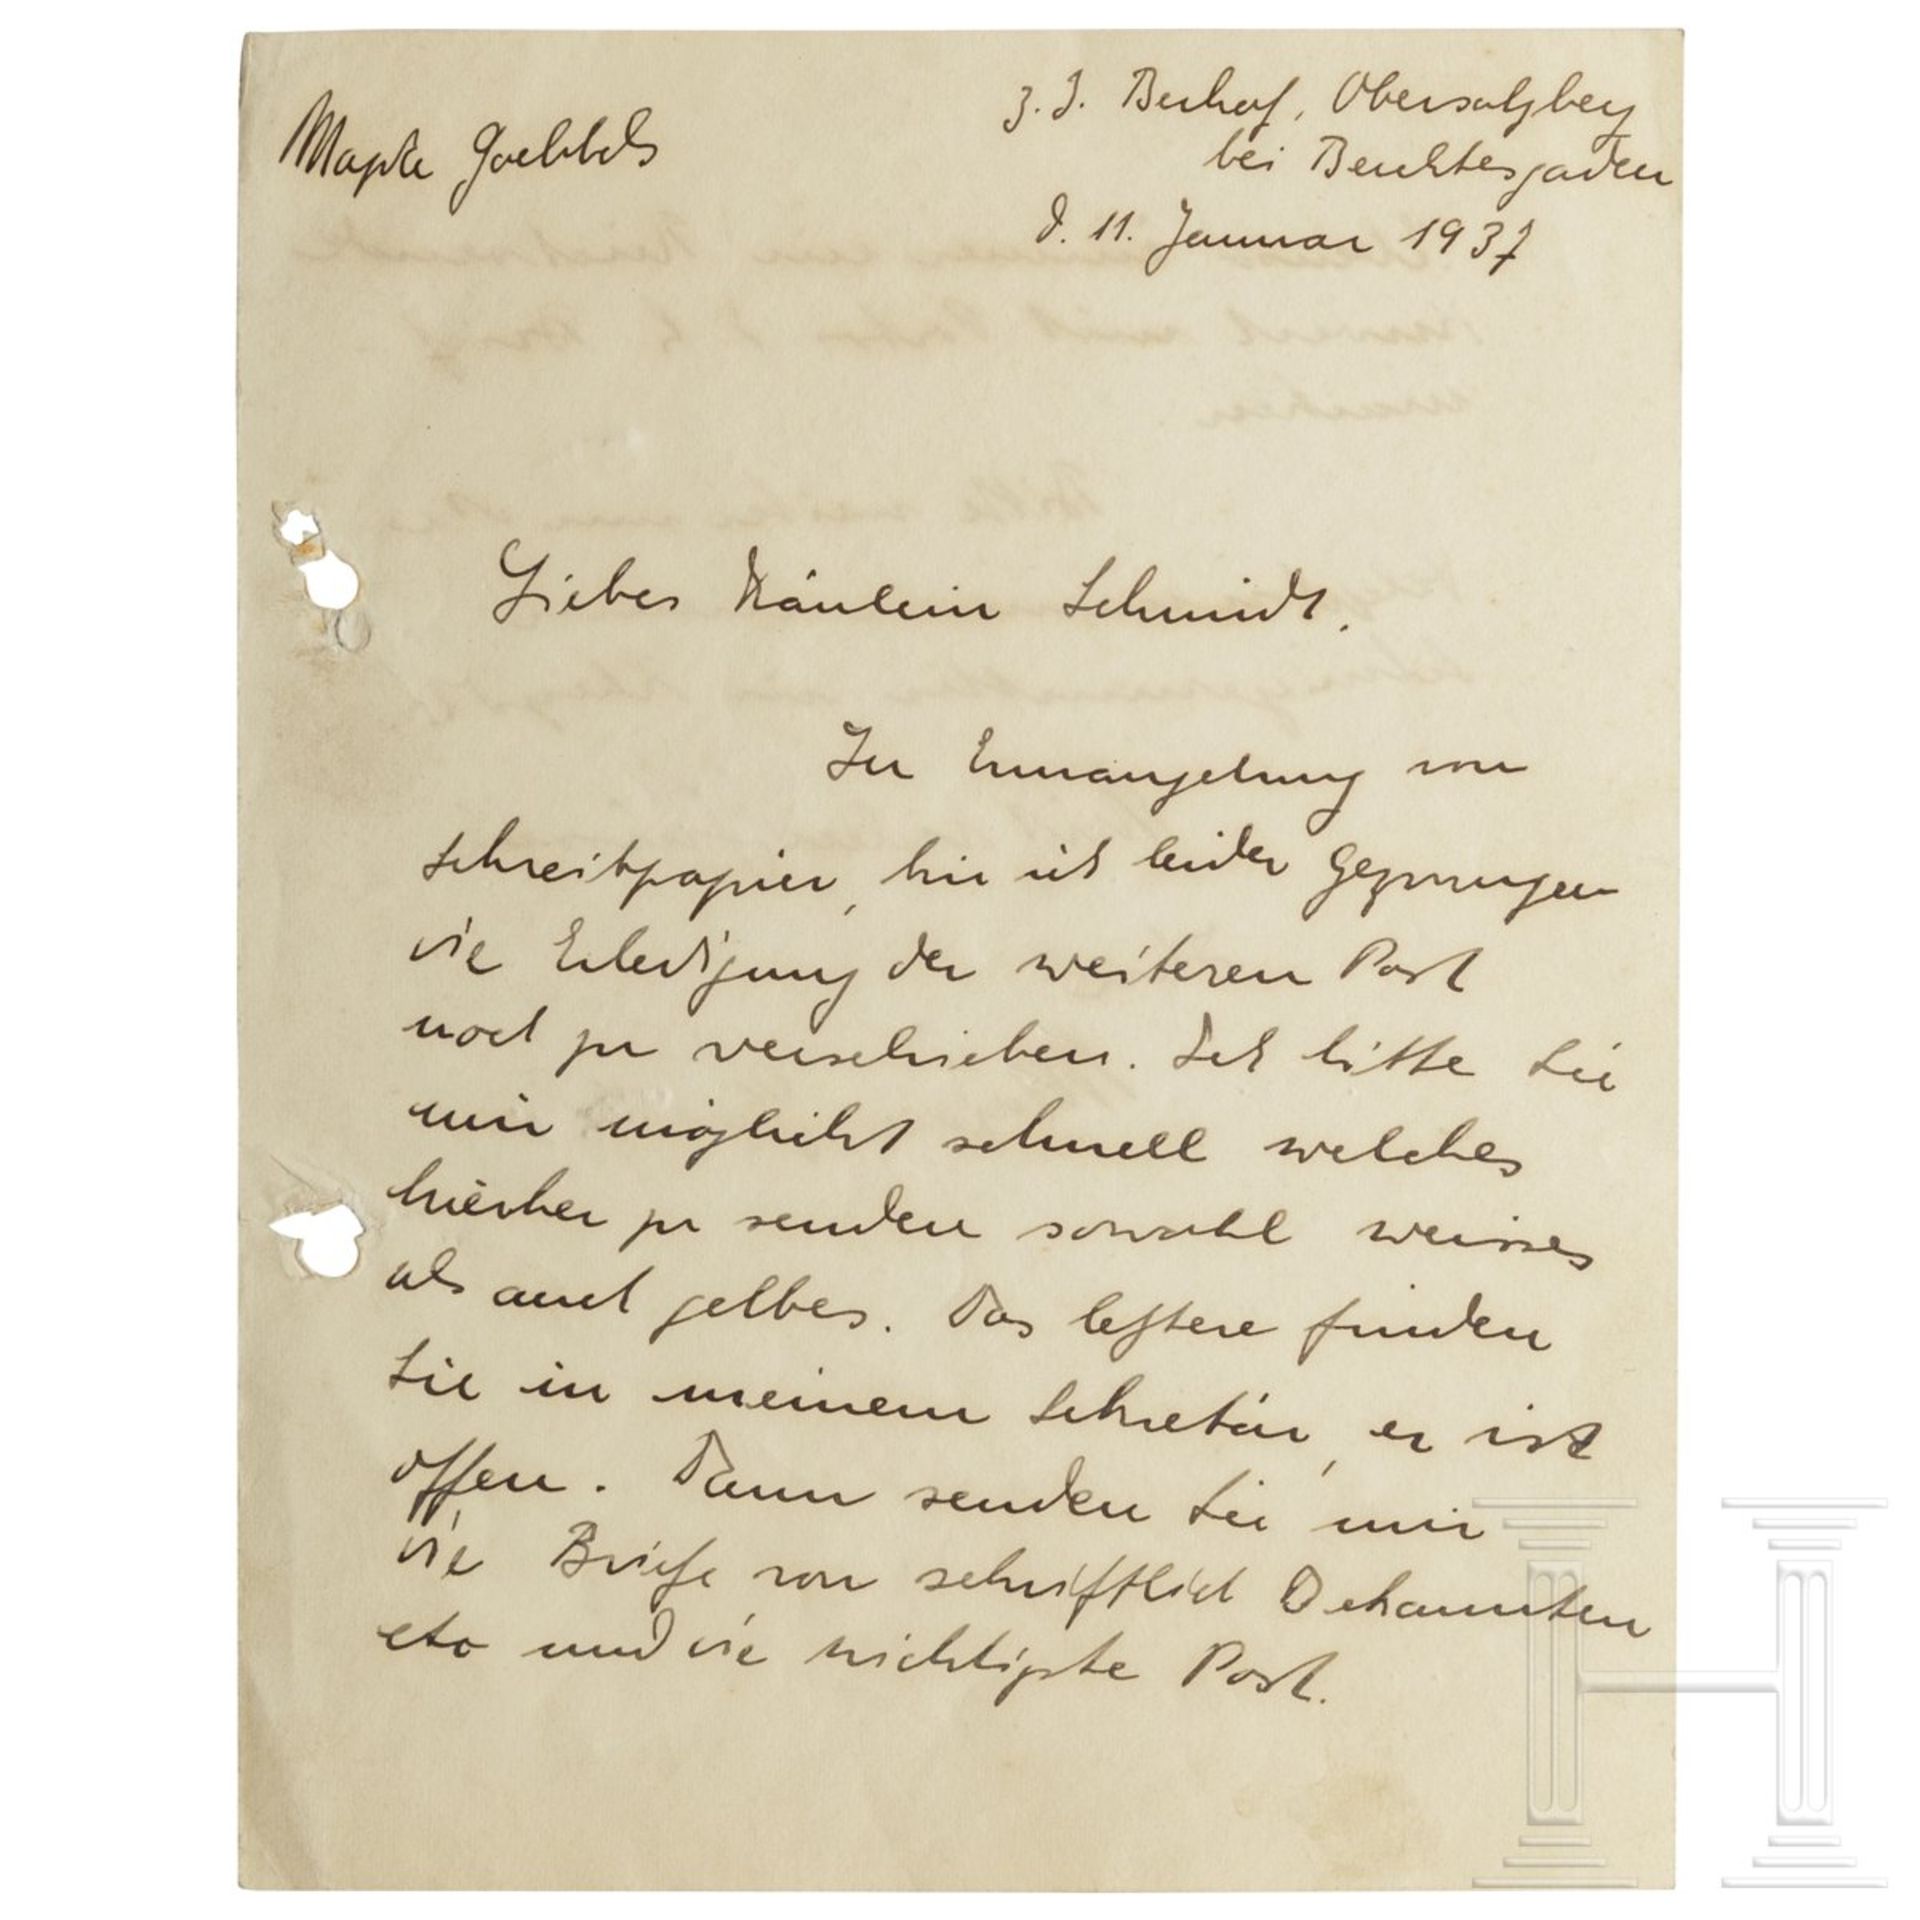 Magda Goebbels
z. Z. Berghof, Obersalzberg
bei Berchtesgaden
d. 11. Januar 1937
Liebes Fräulein Schmidt.
In Ermangelung von
Schreibpapier, bin ich leider gezwungen
die Erledigung der weiteren Post
noch zu verschieben. Ich bitte Sie
mir möglichst schnell welches
hierher zu senden sowohl weisses
als auch gelbes. Das letztere finden
Sie in meinem Sekretär, er ist
offen. Dann senden Sie mir
die Briefe von schriftlich Bekannten
etc und die wichtigste Post.
H